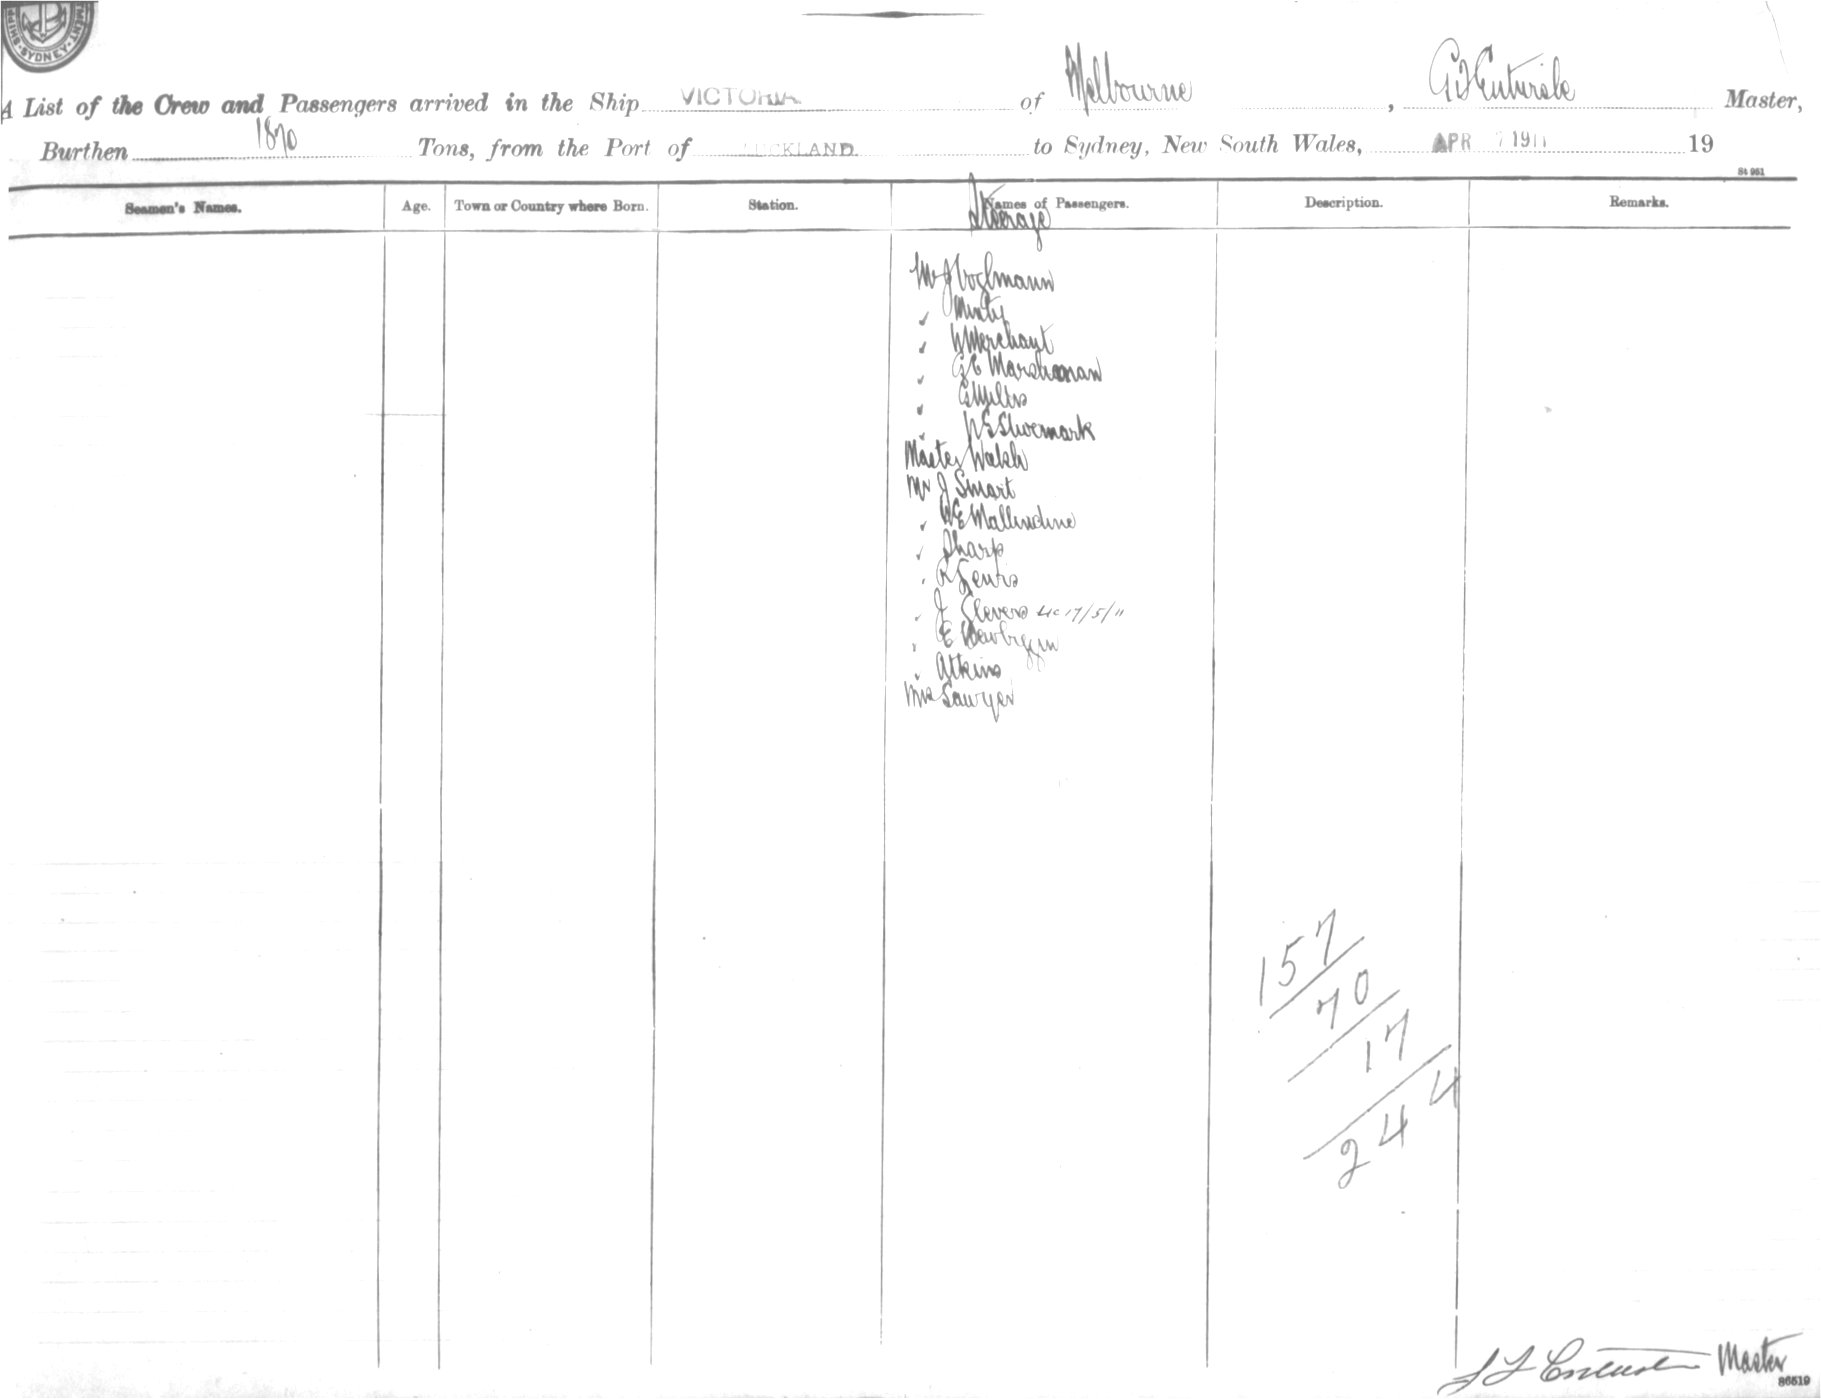 SHIP MENT · SYDNEY ·
A List of the Crew and Passengers arrived in the Ship VICTORIA of Melbourne, G F Entwisle Master,
Burthen 1870 Tons, from the Port of AUCKLAND. to Sydney, New South Wales, APR 7 1911 19
84 951
Seamen's Names. Age. Town or Country where Born. Station. Names of Passengers. Description. Remarks.
Steerage
Mr J Voglmann
" Minty
" W Merchant
" G E Marshman
" G Mills
" W S Shoemark
Master Walsh
Mr J Smart
" W E Mallindine
" Sharp
" R Lewis
" J Clevers 17/5/11
" E Newbiggin
" Atkins
Mrs Sawyer
157
70
17
244
Master
86519